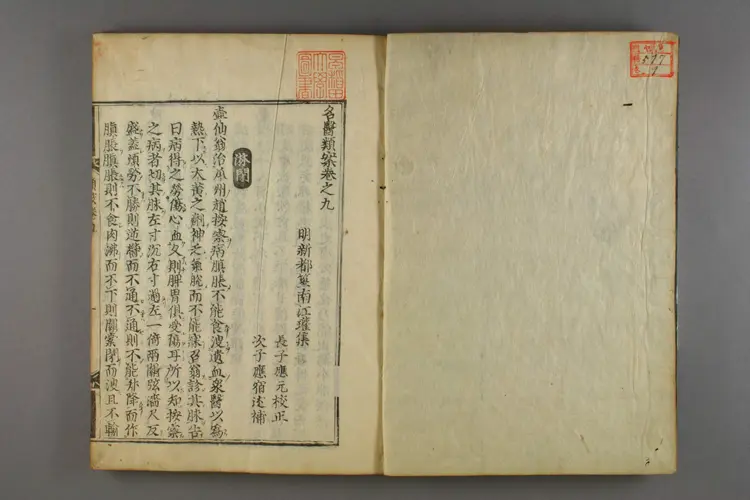 名醫類案卷之九
明新都篁南江瓘集
長子應元校正
次子應宿述補
淋閉
壺仙翁治瓜州趙按察病膹脹不能食溲遺血衆醫以爲
熱下以大黃之劑神乏氣脫而不能寐召翁診其脉告
曰病得之勞傷心血久則脾胃俱受傷耳所以知按察
之病者切其脉左寸沉右寸過左一倍兩關弦濇又反
盛盖煩勞不勝則逆鬱而不通不通則不能升降而作
膹脹膹脹則不食肉沸而不下則關橐閉而溲且不輸
597
1